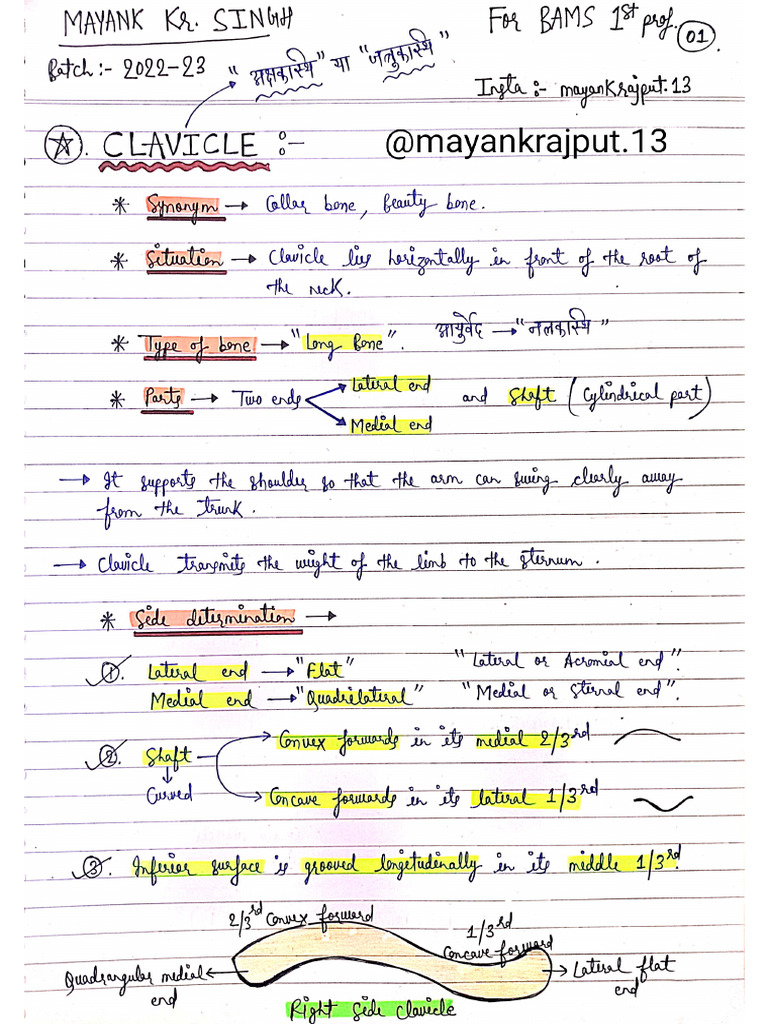 MAYANK Kr. SINGH
For BAMS 1st prof.
01.
Batch :- 2022-23
"अक्षकास्थि" या "जलुकास्थि"
Insta :- mayankrajput.13
CLAVICLE :-
@mayankrajput.13
* Synonym → Collar bone, Beauty bone.
* Situation → Clavicle lies horizontally in front of the root of
the neck.
* Type of bone → "Long Bone". आयुर्वेद → "नलकास्थि"
* Parts → Two ends Lateral end and Shaft (Cylindrical part)
Medial end
→ It supports the shoulder so that the arm can swing clearly away
from the trunk.
→ Clavicle transmits the weight of the limb to the sternum.
* Side determination →
1. Lateral end → "Flat" "Lateral or Acromial end".
Medial end → "Quadrilateral" "Medial or Sternal end".
2. Shaft Convex forwards in its medial 2/3rd
↓
Curved Concave forwards in its lateral 1/3rd
3. Inferior surface is grooved longitudinally in its middle 1/3rd.
2/3rd Convex forward
1/3rd
Concave forward
Quadrangular medial
end
Lateral flat
end
Right side clavicle